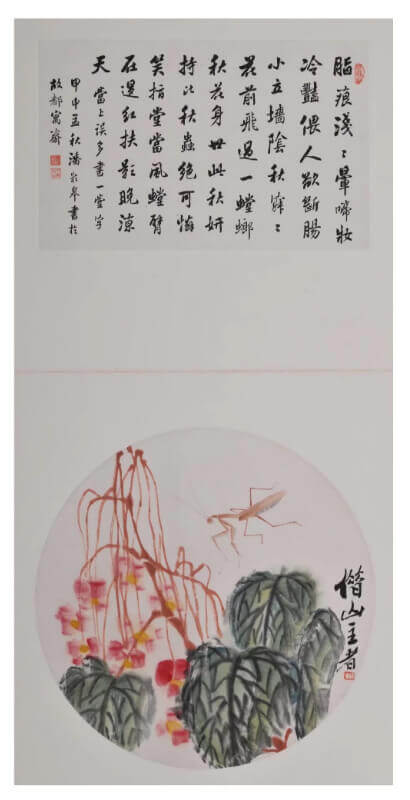 脂痕淺〻暈啼妝
冷豔偎人欲斷腸
小立墻陰秋寂〻
花前飛過一螳螂
秋花身世此秋妍
持比秋蟲絕可憐
笑指堂當風螳臂
石邊紅扶影晚涼
天 當上誤多書一堂字
甲申孟秋潘齡皋書於
故都寓齋
借山主者